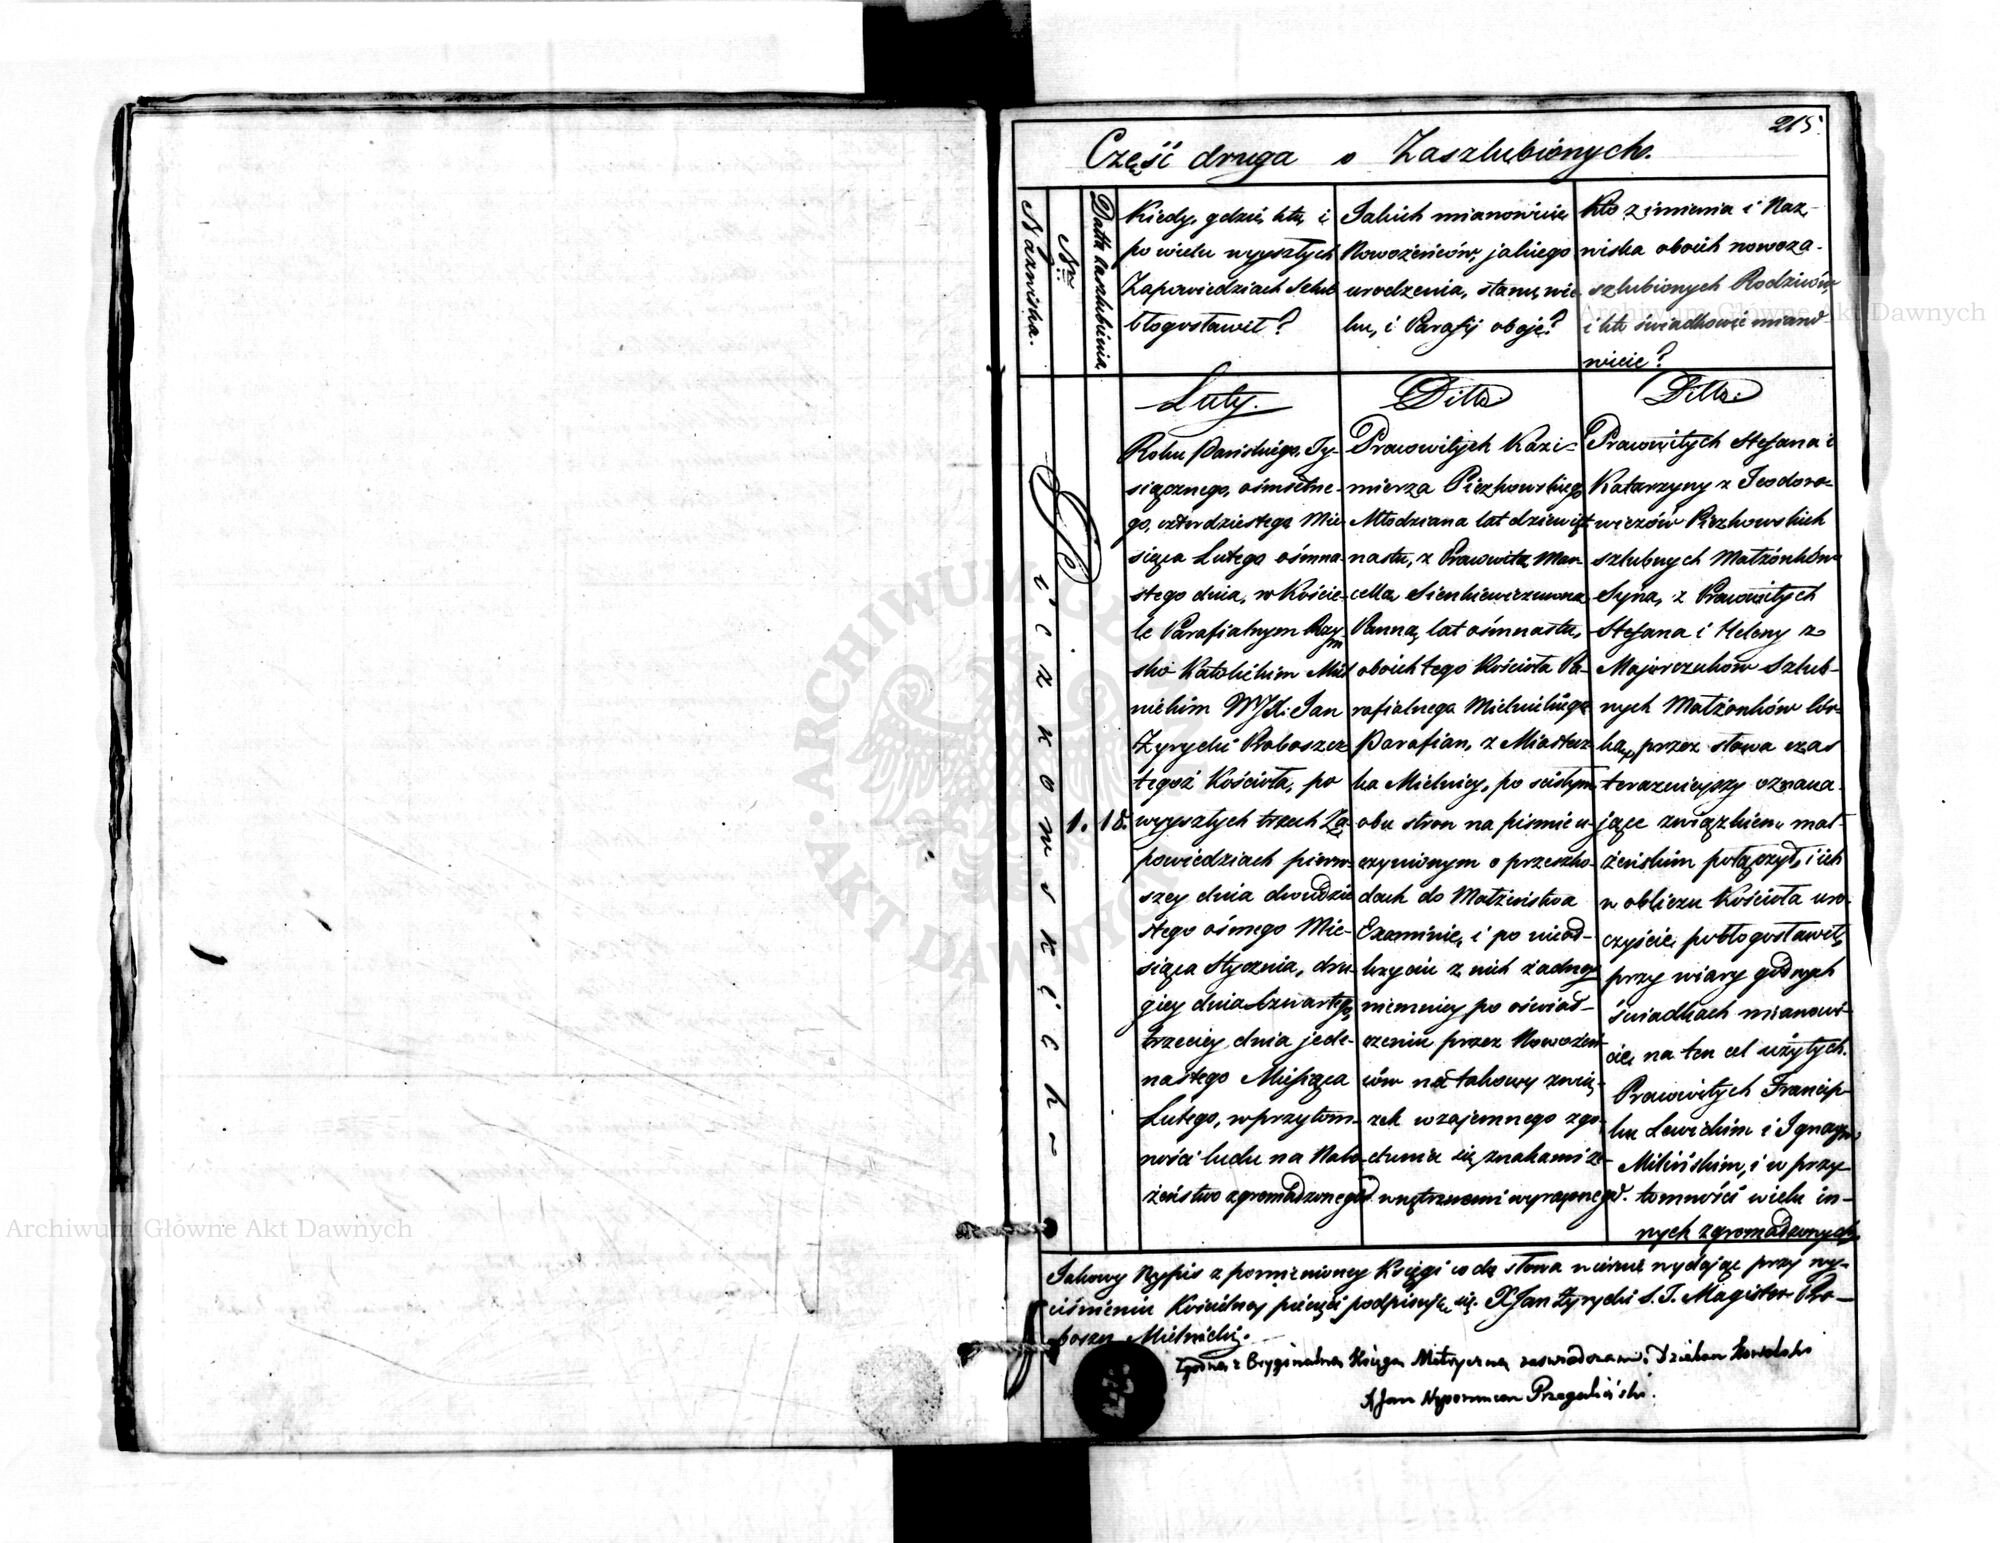 215.
Część druga o Zaszlubionych.
Nazwiska.
Nr
Datta Zaszlubienia
Kiedy, gdzie, kto, i
po wielu wyyszłych
Zapowiedziach Szlub
błogosławił?
Jakich mianowicie
Nowożeńców, jakiego
urodzenia, stanu, wie-
ku, i Parafij oboje?
Kto z imienia i Naz-
wiska oboich nowoza-
szlubionych Rodziców,
i kto świadkowie miano-
wicie?
Piczkowskich
1.
18.
Luty.
Roku Pańskiego, Ty-
siącznego, ośmsetne-
go, czterdziestego Mie-
siąca Lutego ośmna-
stego dnia, w Koście-
le Parafialnym Rzym
sko Katolickim Miel
nickim WJX: Jan
Żyrycki Proboszcz
tegoż Kościoła, po
wyyszłych trzech Za-
powiedziach pierw-
szey dnia dwudzie
stego ósmego Mie-
siąca Stycznia, dru-
giey dnia Czwartego,
trzeciey dnia jede-
nastego Miesiąca
Lutego, w przytom-
ności ludu na Nabo-
żeństwo zgromadzonego
Ditto.
Prawowitych Kazi-
mierza Piczkowskiego
Młodziana lat dziewięt
nastu, z Prawowitą Mar-
cellą Sienkiewiczuwną
Panną, lat ośmnastu,
oboich tego Kościoła Pa-
rafialnego Mielnickiego
Parafian, z Miastecz
ka Mielnicy, po ścisłym
obu stron na piśmie u-
czynionym o przeszko-
dach do Małżeństwa
Examinie, i po nieod-
kryciu z nich żadney
niemniey po oświad-
czeniu przez Nowożeń
ców na takowy zwią-
zek wzajemnego zgo-
dzenia się znakami ze-
wnętrznemi wyrażonego.
Ditto.
Prawowitych Stefana i
Katarzyny z Teodoro-
wiczów Piczkowskich
szlubnych Małżonków
Syna, z Prawowitych
Stefana i Heleny z
Majorczuków Szlub-
nych Małżonków Cór-
ką, przez słowa czas
teraznieyszy oznacza-
jące związkiem mał-
żeńskim połączył, i ich
w obliczu Kościoła uro-
czyście pobłogosławił,
przy wiary godnych
świadkach mianowi-
cie, na ten cel użytych.
Prawowitych Francisz-
ku Lewickim i Ignacym
Milińskim, i w przy-
tomności wielu in-
nych zgromadzonych.
Takowy Wypis z pomienioney Księgi co do słowa wiernie wydając przy wy-
ciśnieniu Kościelney pieczęci podpisuję się. X Jan Żyrycki S. T. Magister Pro-
boszcz Mielnicki.
Zgodno z Oryginalną Księgą Metryczną zaświadczam: Dziekan Kowelski
X Jan Nepomucen Przegaliński.
Archiwum Główne Akt Dawnych
Archiwum Główne Akt Dawnych
ARCHIWUM GŁÓWNE AKT DAWNYCH